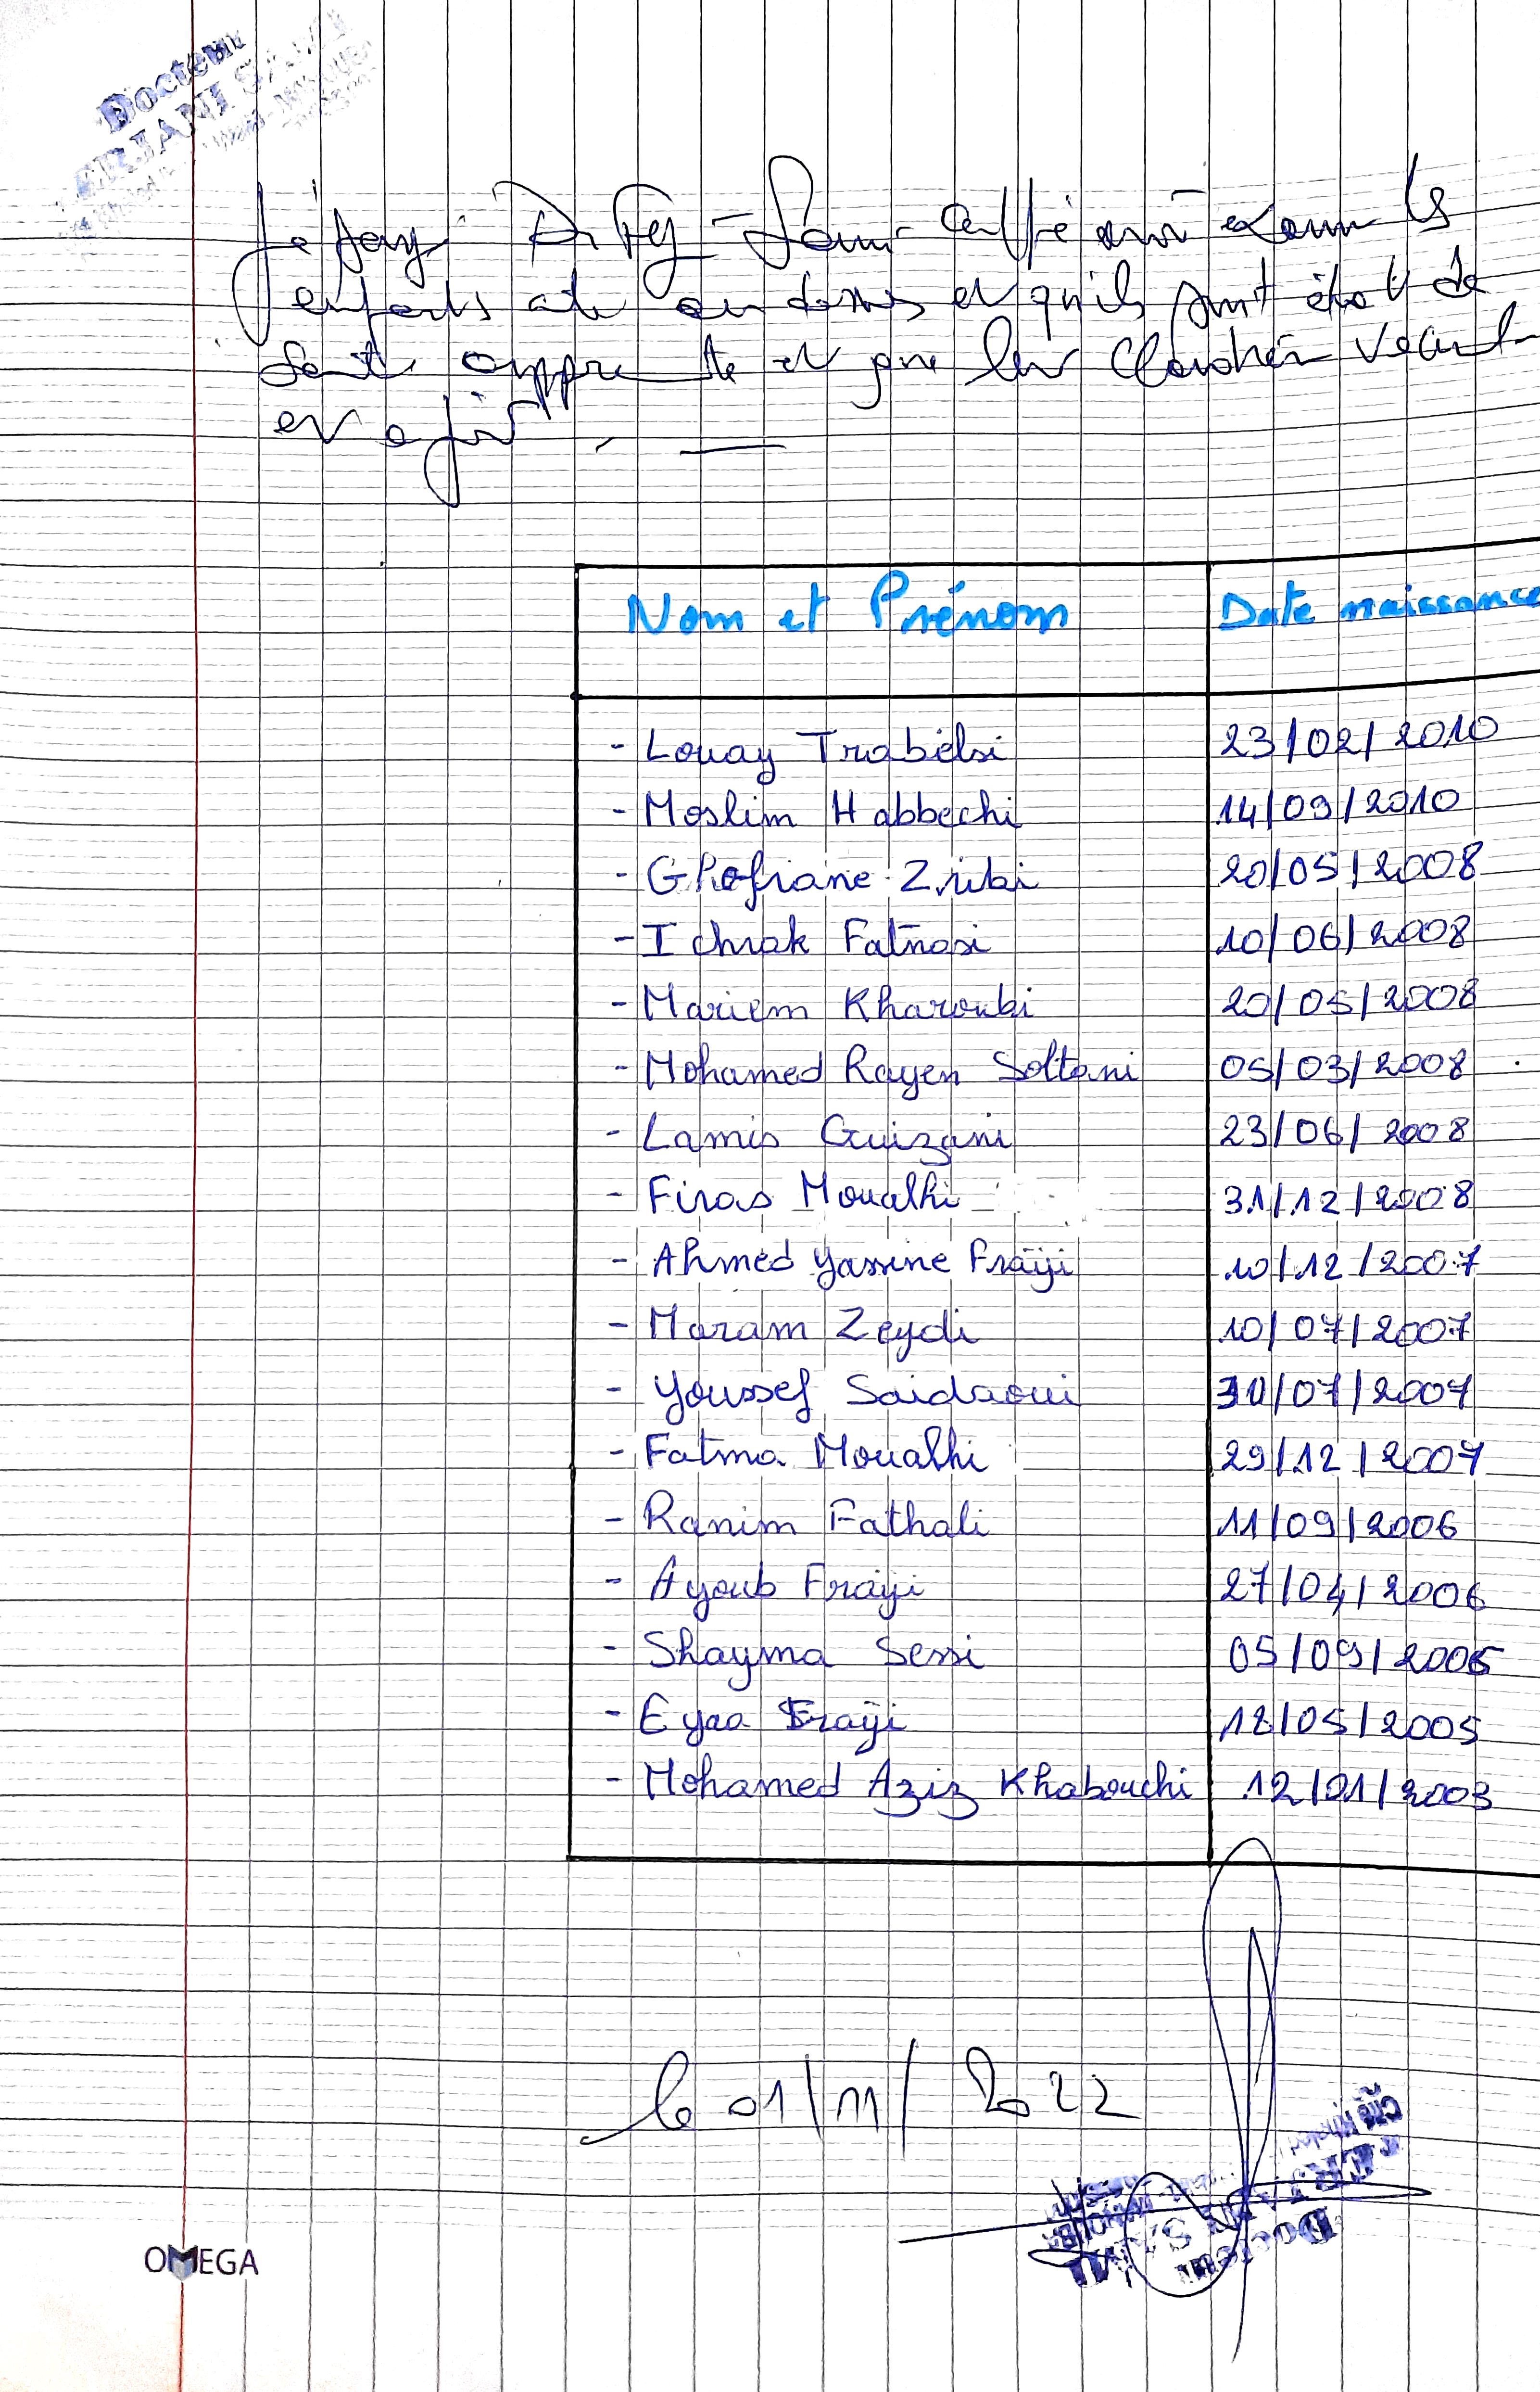 Docteur
enfants cités au dessus et qu'ils sont état de
santé apparente et que leur
et à jour
Nom et Prénom Date naissance
- Louay Trabelsi 23/02/2010
- Moslim Habbechi 14/09/2010
- Ghofrane Zribi 20/05/2008
- Ichrak Fatnasi 10/06/2008
- Mariem Kharoubi 20/05/2008
- Mohamed Rayen Soltani 05/03/2008
- Lamis Guizani 23/06/2008
- Firas Moualhi 31/12/2008
- Ahmed Yassine Fraiji 10/12/2007
- Maram Zeydi 10/07/2007
- Youssef Saidaoui 30/07/2007
- Fatma Moualhi 29/12/2007
- Ranim Fathali 11/09/2006
- Ayoub Fraiji 27/04/2006
- Shayma Sessi 05/09/2006
- Eyaa Fraiji 12/05/2005
- Mohamed Aziz Khabouchi 12/01/2003
le 01/11/2022
Docteur
OMEGA